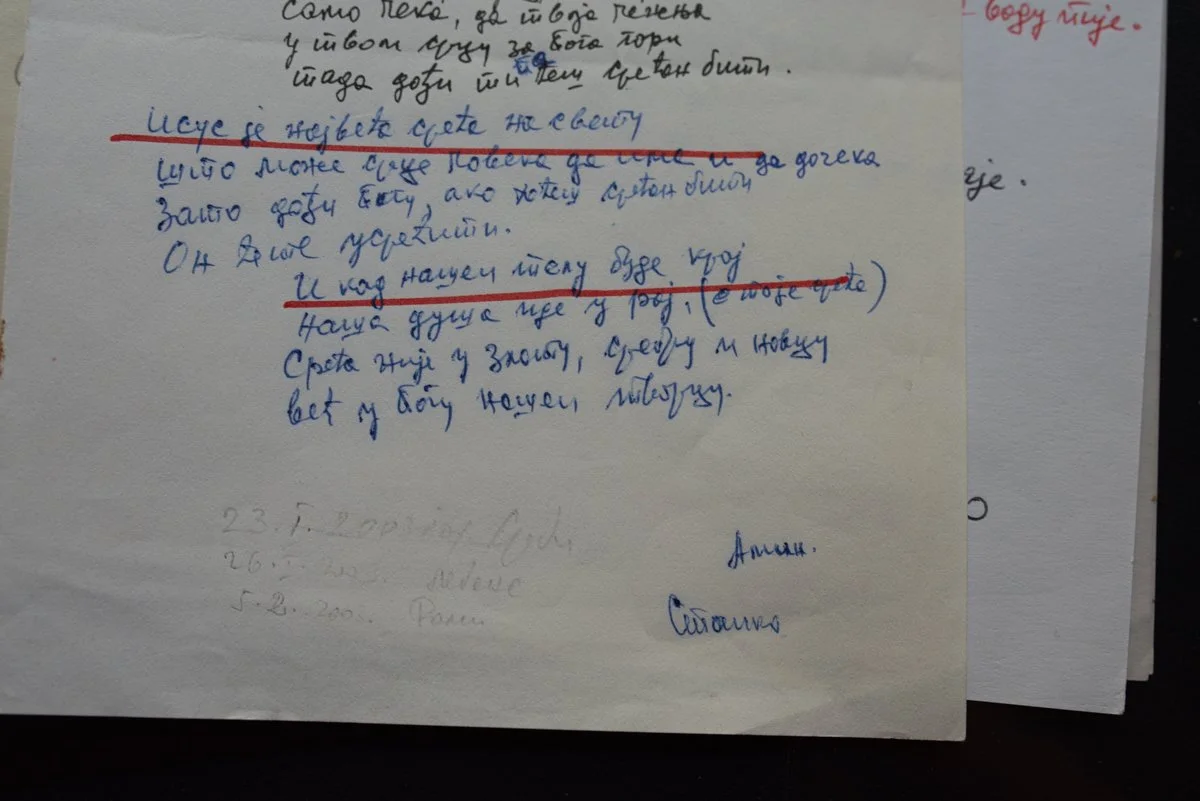 само чека, да твоја чежња
у твом срцу за Бога гори
тада дођи ти ћеш срећан бити.
Исус је највећа срећа на свету
што може срце човека да име и да дочека
Зато дођи Богу, ако хоћеш срећан бити
Он ће те усрећити.
И кад нашем телу буде крај
наша душа иде у рај, (е то је срећа)
Срећа није у злату, сребру и новцу
већ у Богу нашем творцу.
23. I.
26. I. 2003.
5. 2.
Амин.
Станка
воду пије.
је.